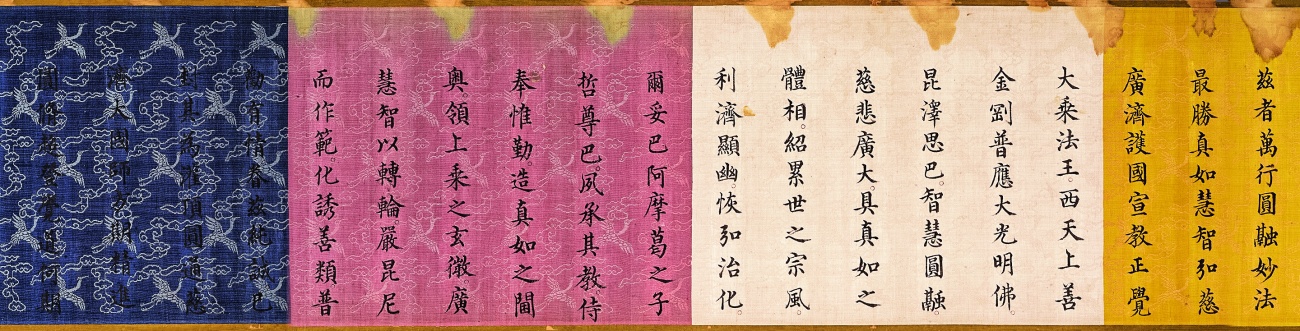 茲者萬行圓融妙法
最勝真如慧智弘慈
廣濟護國宣教正覺
大乘法王。西天上善
金剛普應大光明佛。
昆澤思巴。智慧圓融。
慈悲廣大。具真如之
體相。紹累世之宗風。
利濟顯幽。恢弘治化。
爾妥巴阿摩葛之子
哲尊巴。夙承其教。侍
奉惟勤。造真如之閫
奥。領上乘之玄微。廣
慧智以轉輪。嚴昆尼
而作範。化誘善類。普
勸有情。眷茲純誠。已
封真為灌頂圓通慈
濟大國師。友斯精進